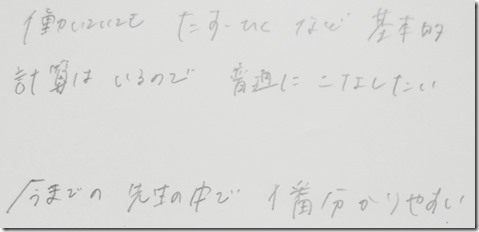 働いていても たすーひく など 基本的
計算は いるので 普通に こなしたい
今までの 先生の中で 1番分かりやすい